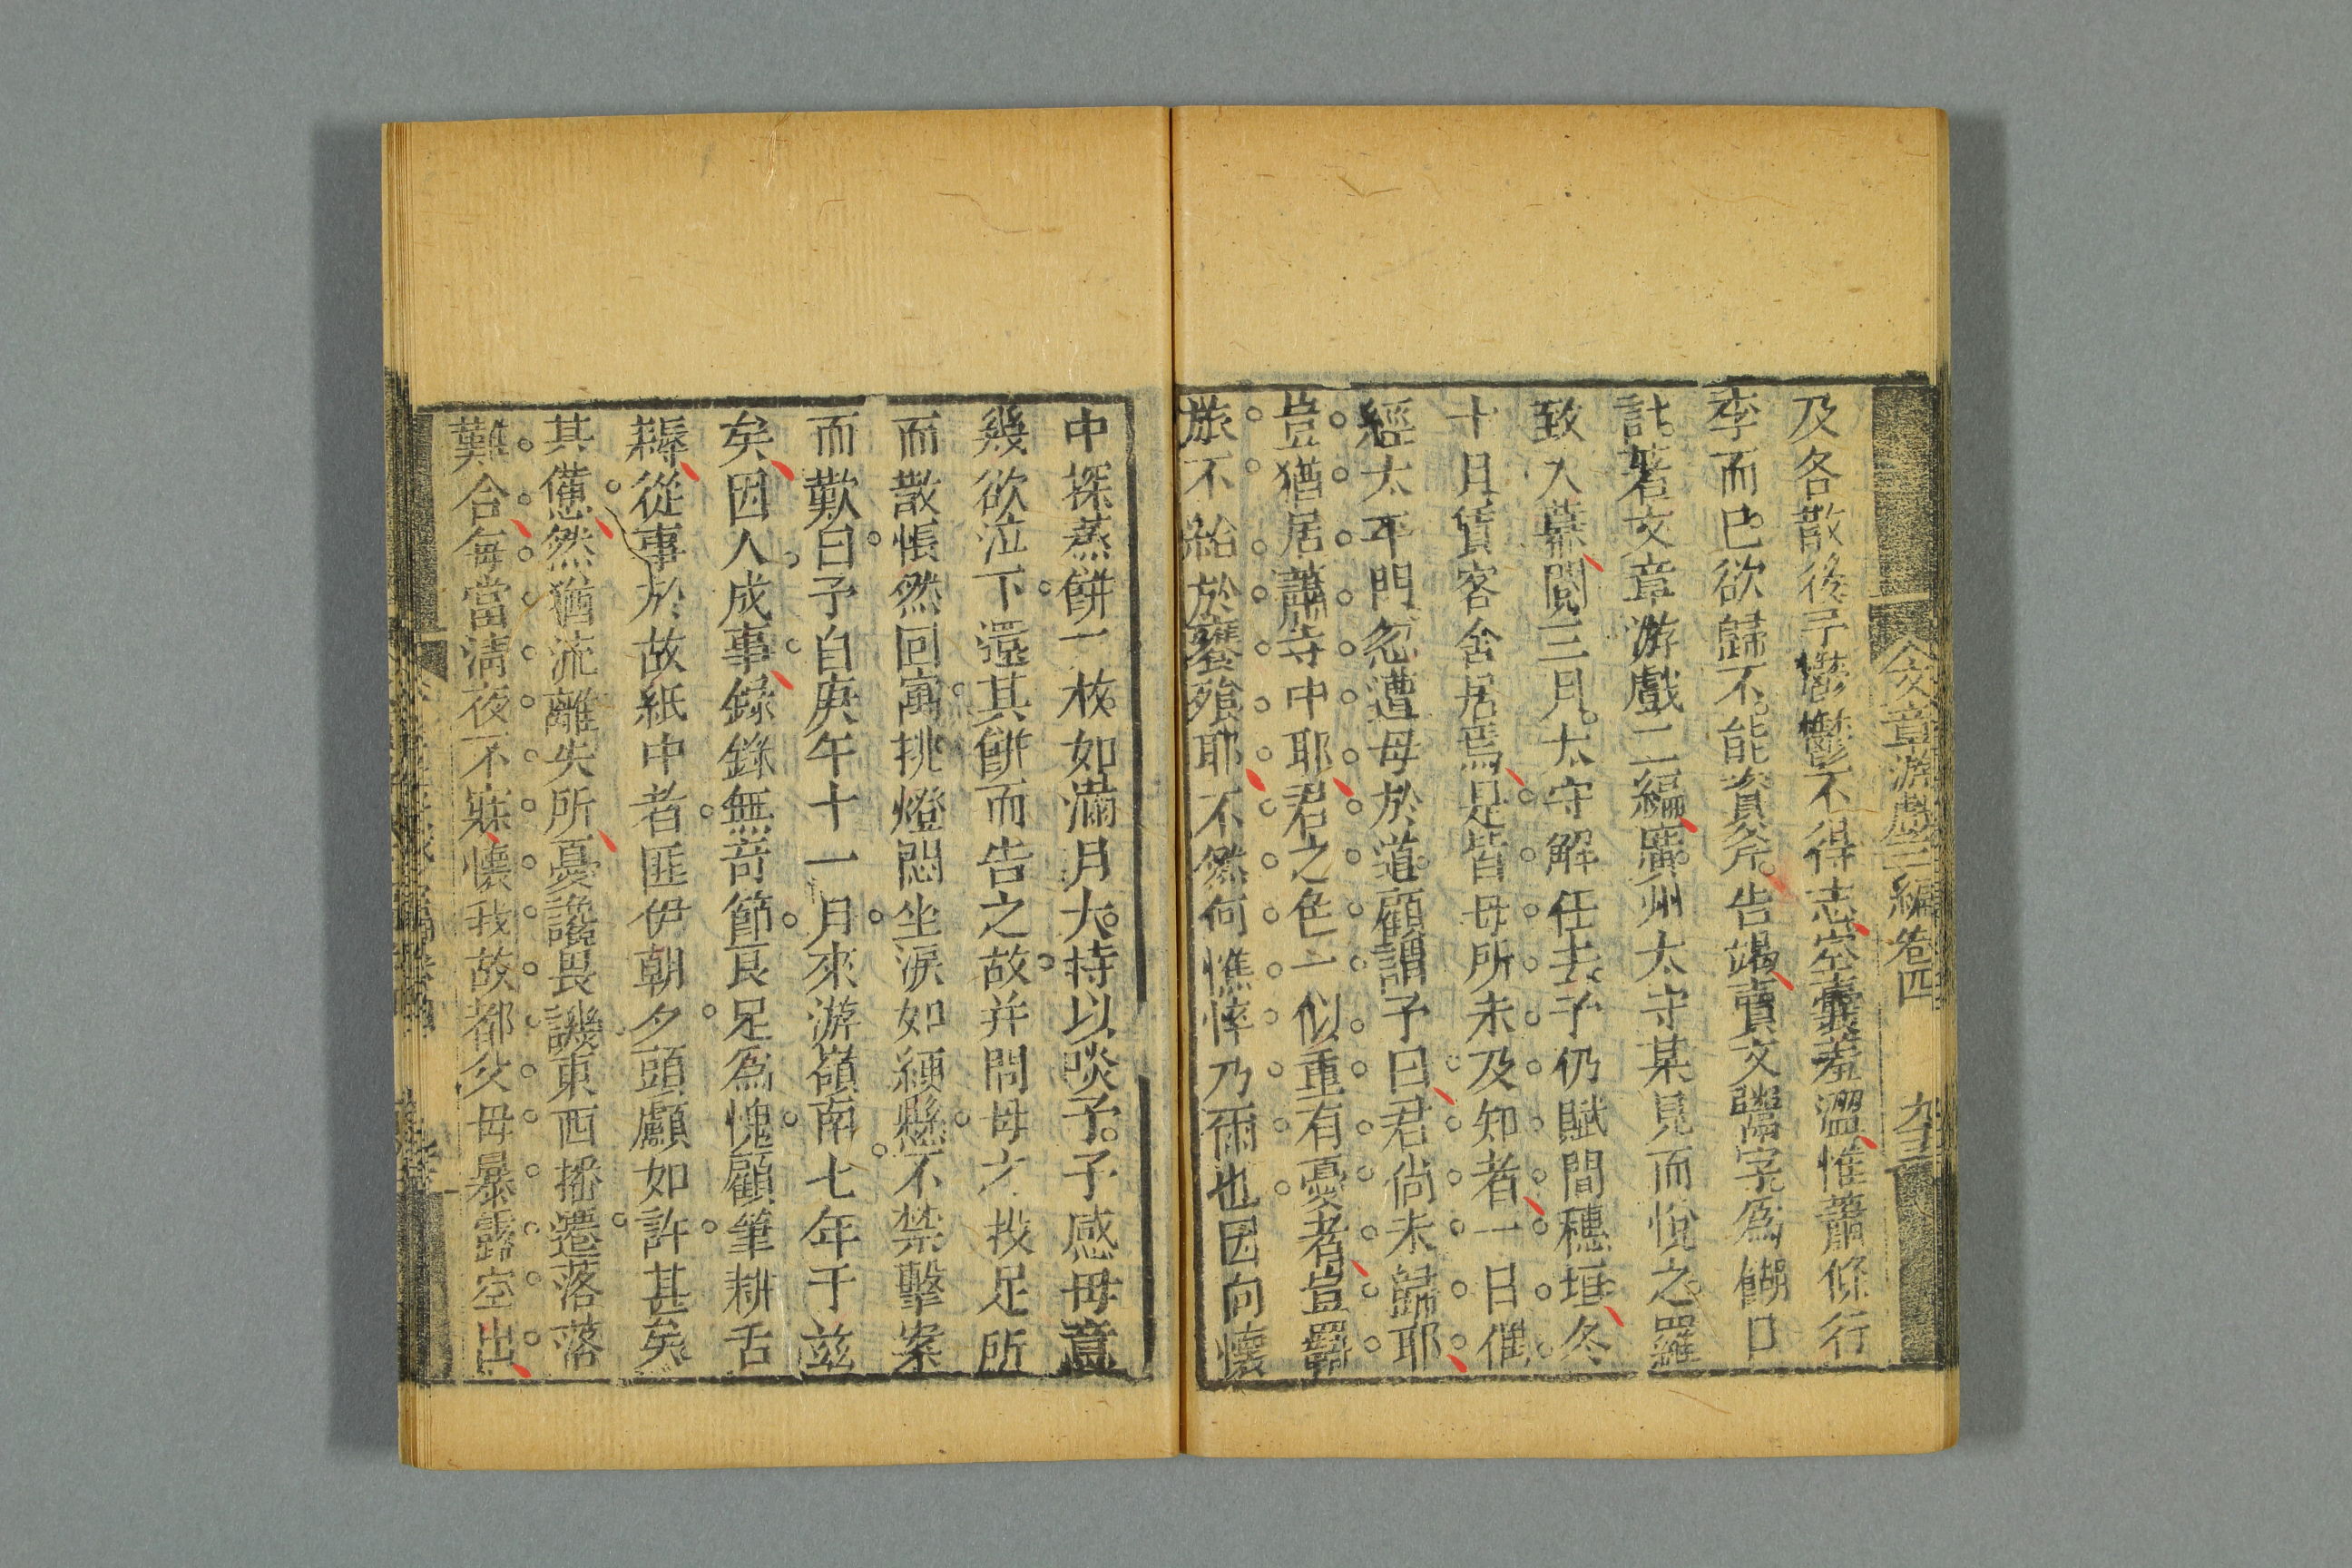 文章游戲三編卷四
及各散後予鬱鬱不得志空囊羞澀惟蕭條行
李而已欲歸不能資斧告竭賣文鬻字爲餬口
計著文章游戲二編廣州太守某見而悅之羅
致入幕閱三月太守解任去予仍賦閒穗垣冬
十月賃客舍居焉是皆母所未及知者一日催
經太平門忽遭母於道顧謂予曰君尙未歸耶
豈猶居蕭寺中耶君之色一似重有憂者豈羇
旅不給於饔飱耶不然何憔悴乃爾也因向懷
中探蒸餠一枚如滿月大持以啖予予感母意
幾欲泣下還其餠而告之故并問母才投足所
而散悵然回寓挑燈悶坐淚如綆縻不禁擊案
而歎曰予自庚午十一月來游嶺南七年于兹
矣因人成事錄錄無竒節良足爲愧顧筆耕舌
耨從事於故紙中者匪伊朝夕頭顱如許甚矣
其憊然猶流離失所憂讒畏譏東西播遷落落
難合每當淸夜不寐懷我故都父母暴露空出